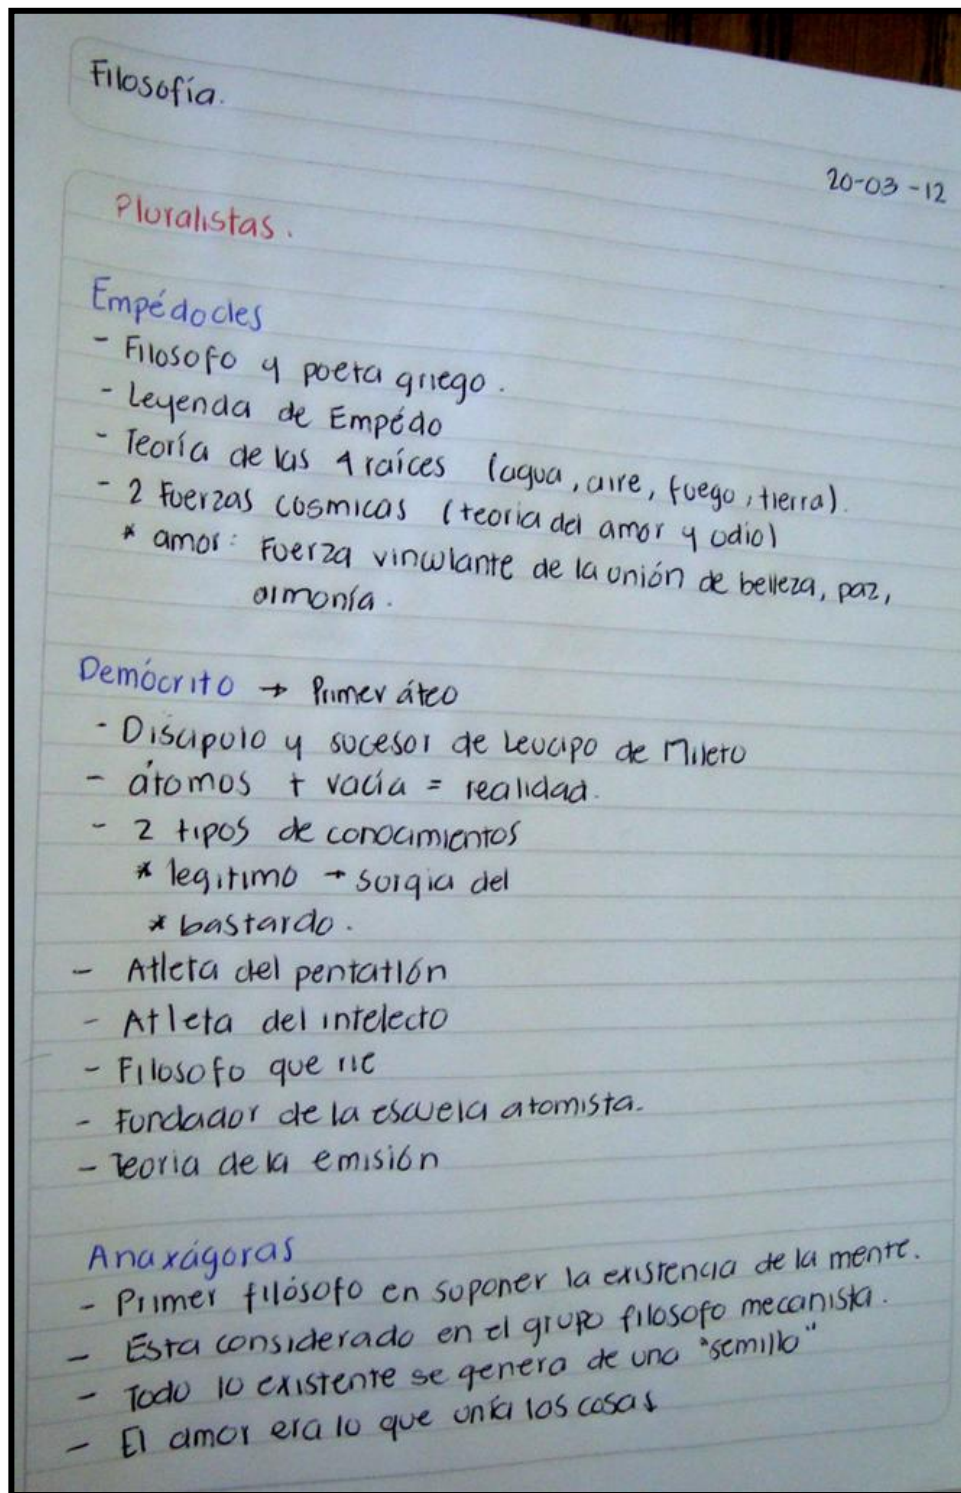 Filosofía.
20-03-12
Pluralistas.
Empédocles
- Filosofo y poeta griego.
- Leyenda de Empédo
- Teoría de las 4 raíces (agua, aire, fuego, tierra).
- 2 Fuerzas cosmicas (teoria del amor y odio)
* amor: Fuerza vinculante de la unión de belleza, paz,
armonía.
Demócrito → Primer áteo
- Discipulo y sucesor de Leucipo de Mileto
- átomos + vacía = realidad.
- 2 tipos de conocimientos
* legitimo → surgia del
* bastardo.
- Atleta del pentatlón
- Atleta del intelecto
- Filosofo que rie
- Fundador de la escuela atomista.
- Teoria de la emisión
Anaxágoras
- Primer filósofo en suponer la existencia de la mente.
- Esta considerado en el grupo filosofo mecanista.
- Todo lo existente se genera de una "semilla"
- El amor era lo que unía las cosas